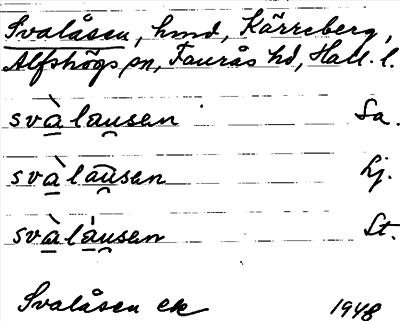 Svalåsen, hmd, Kärreberg,
Alfshögs sn, Faurås hd, Hall. l.
svàlau̯sen Sa.
svàlāu̯sen Lj.
svàláu̯sen St.
Svalåsen ek 1948